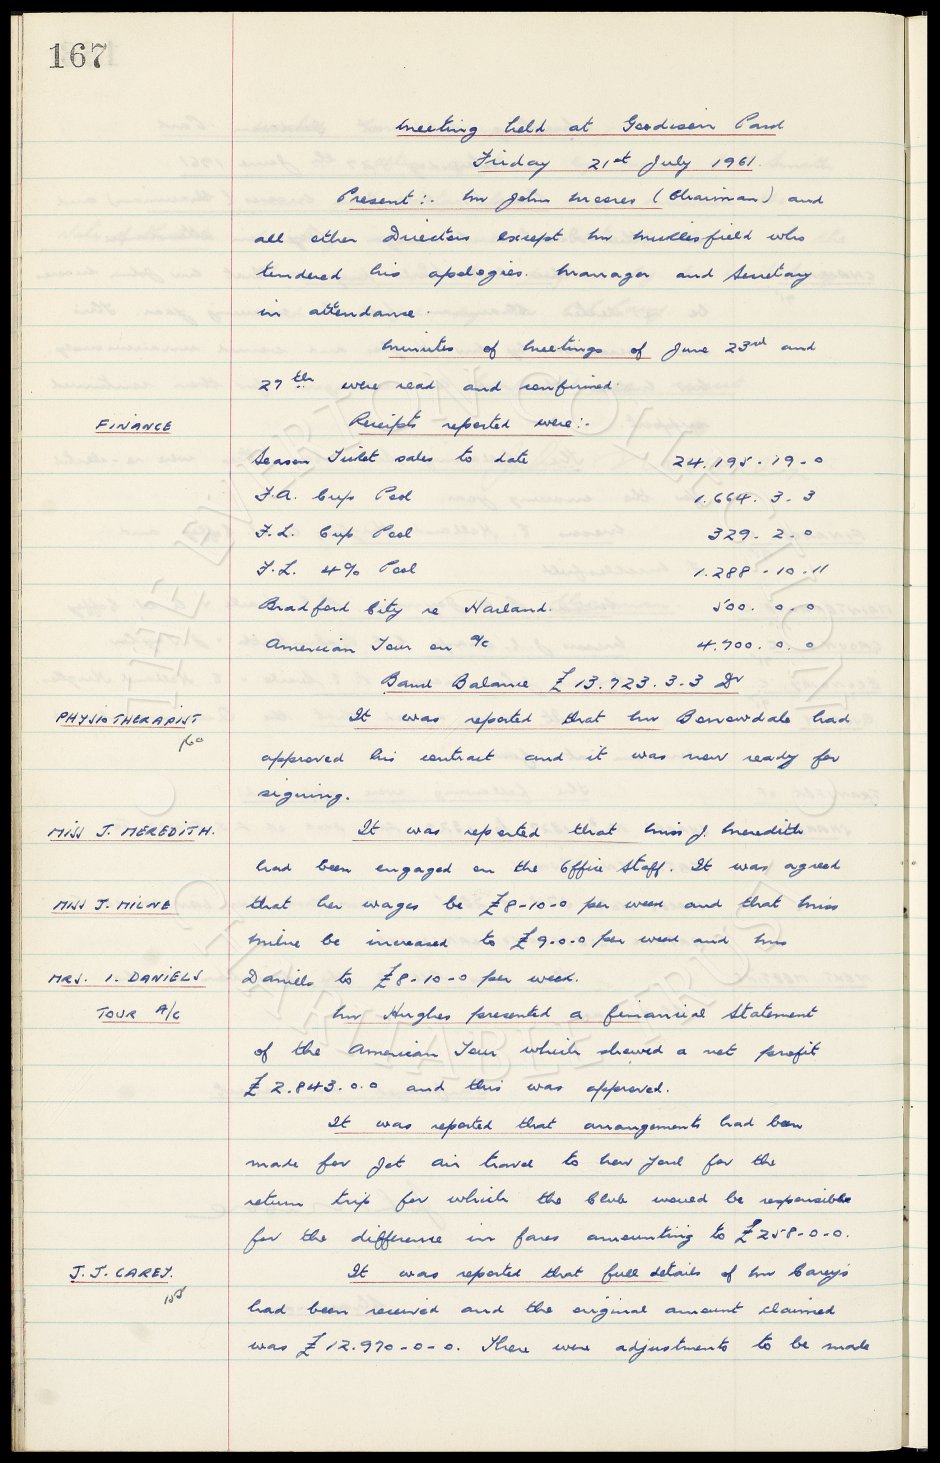 167
Meeting held at Goodison Park
Friday 21st July 1961.
Present:- Mr John Moores (Chairman) and
all other Directors except Mr Micklesfield who
tendered his apologies. Manager and Secretary
in attendance.
Minutes of Meetings of June 23rd and
29th were read and confirmed.
FINANCE Receipts reported were:-
Season Ticket sales to date 24.195.19.0
F.A. Cup Pool 1.664.3.3
F.L. Cup Pool 329.2.0
F.L. 4% Pool 1.288.10.11
Bradford City re Harland. 500.0.0
American Tour on a/c 4.700.0.0
Bank Balance £13.923.3.3 Dr
PHYSIOTHERAPIST It was reported that Mr Borrowdale had
approved his contract and it was now ready for
signing.
MISS J. MEREDITH. It was reported that Miss J. Meredith
had been engaged on the Office Staff. It was agreed
MISS J. MILNE that her wages be £8-10-0 per week and that Miss
Milne be increased to £9.0.0 per week and Mrs
MRS. I. DANIELS Daniels to £8-10-0 per week.
TOUR A/C Mr Hughes presented a financial Statement
of the American Tour which showed a net profit
£2.843.0.0 and this was approved.
It was reported that arrangements had been
made for Jet Air travel to New York for the
return trip for which the Club would be responsible
for the difference in fares amounting to £258-0-0.
J.J. CAREY. It was reported that full details of Mr Carey's
had been received and the original amount claimed
was £12.970-0-0. There were adjustments to be made